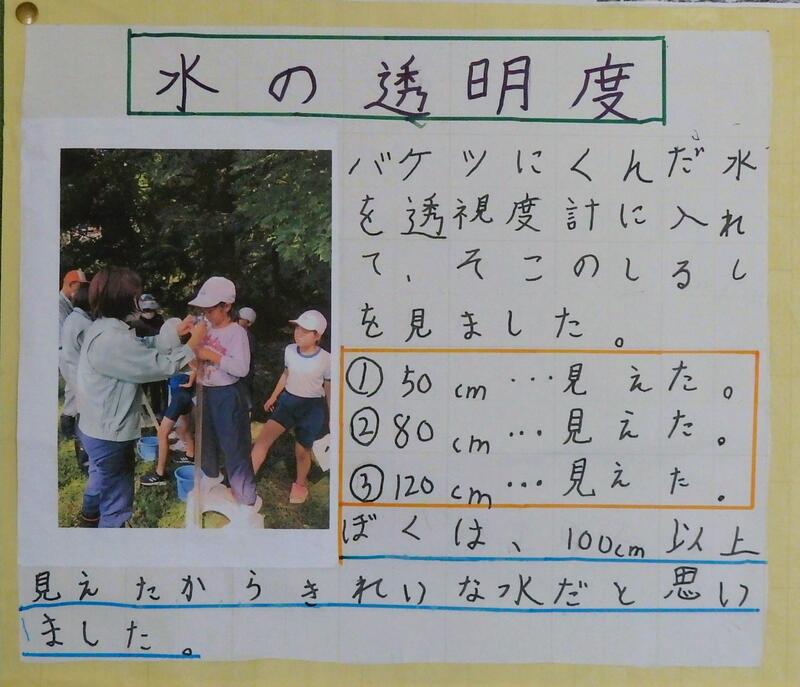 水の透明度
バケツにくんだ水
を透視度計に入れ
て、そこのしるし
を見ました。
①50cm…見えた。
②80cm…見えた。
③120cm…見えた。
ぼくは、100cm以上
見えたからきれいな水だと思い
ました。